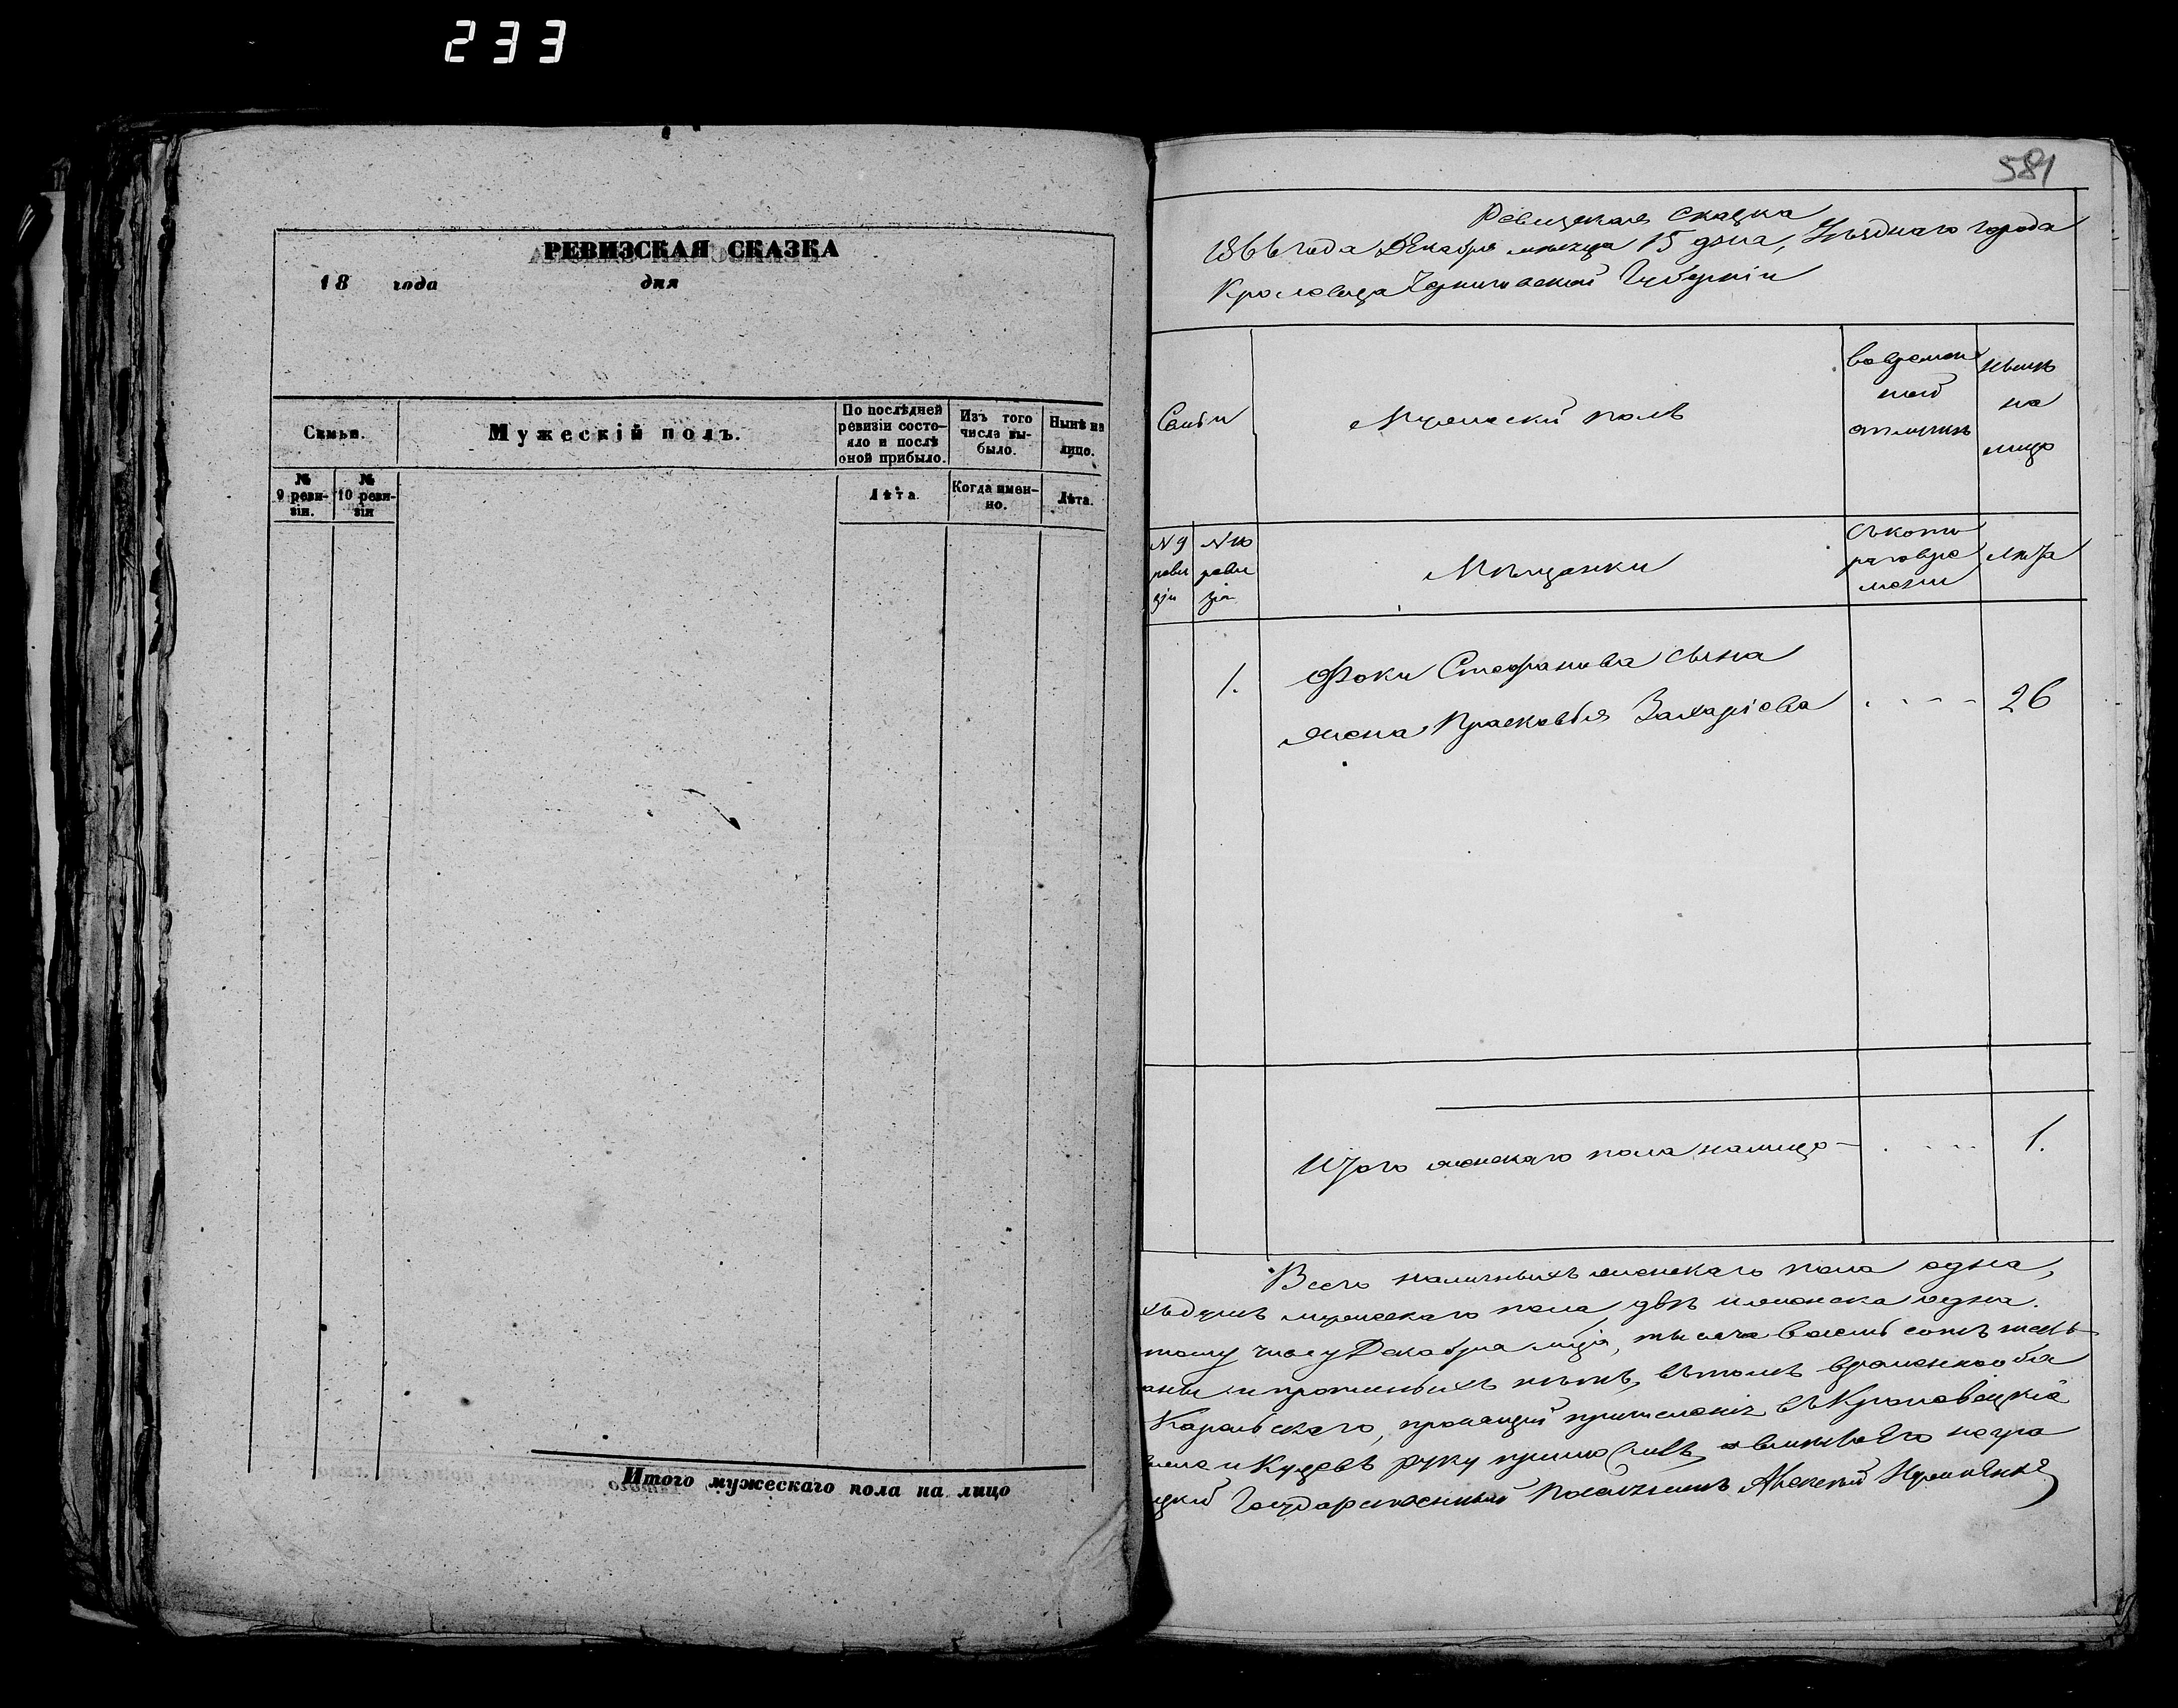 233
РЕВИЗСКАЯ СКАЗКА
18 года дня
Семьи.
Мужескій полъ.
По послѣдней ревизіи состояло и послѣ оной прибыло.
Изъ того числа выбыло.
Нынѣ на лицо.
№ 9 ревизіи.
№ 10 ревизіи
Лѣта.
Когда именно.
Лѣта.
Итого мужескаго пола на лицо
581
Ревизская Сказка
1866 года Декабря мѣсяца 15 дня, Уѣзднаго города
Кролевца Черниговской Губерніи
Семьи
Мужескій полъ
во временной отлучкѣ
нынѣ на лицо
N 9 ревизіи
N 10 ревизіи
Мѣщанки
Съ котораго времени
Лѣта
1.
Фоки Стефанова сына
жена Прасковья Захаріева
26
Итого женскаго пола налицо
1.
Всего наличныхъ женскаго пола одна,
мужескаго пола двѣ и женска одна.
числу Декабря мца, тысяча восемь сотъ
нѣтъ, въ томъ
въ Кролевецкіе
руку приложилъ
Государственный